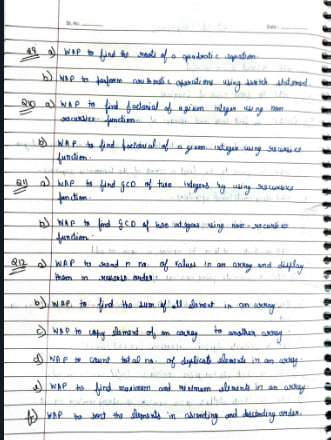 Date
Q9 a) WAP to find the roots of a quadratic equation.
b) WAP to perform arithmetic operations using switch statement.
Q10 a) WAP to find factorial of a given integer using non
recursive function.
b) WAP to find factorial of a given integer using recursive
function.
Q11 a) WAP to find GCD of two integers by using recursive
function.
b) WAP to find GCD of two integers using non-recursive
function.
Q12 a) WAP to read n no. of values in an array and display
them in reverse order.
b) WAP to find the sum of all element in an array.
c) WAP to copy element of an array to another array.
d) WAP to count total no. of duplicate elements in an array.
e) WAP to find maximum and minimum elements in an array.
f) WAP to sort the elements in ascending and descending order.